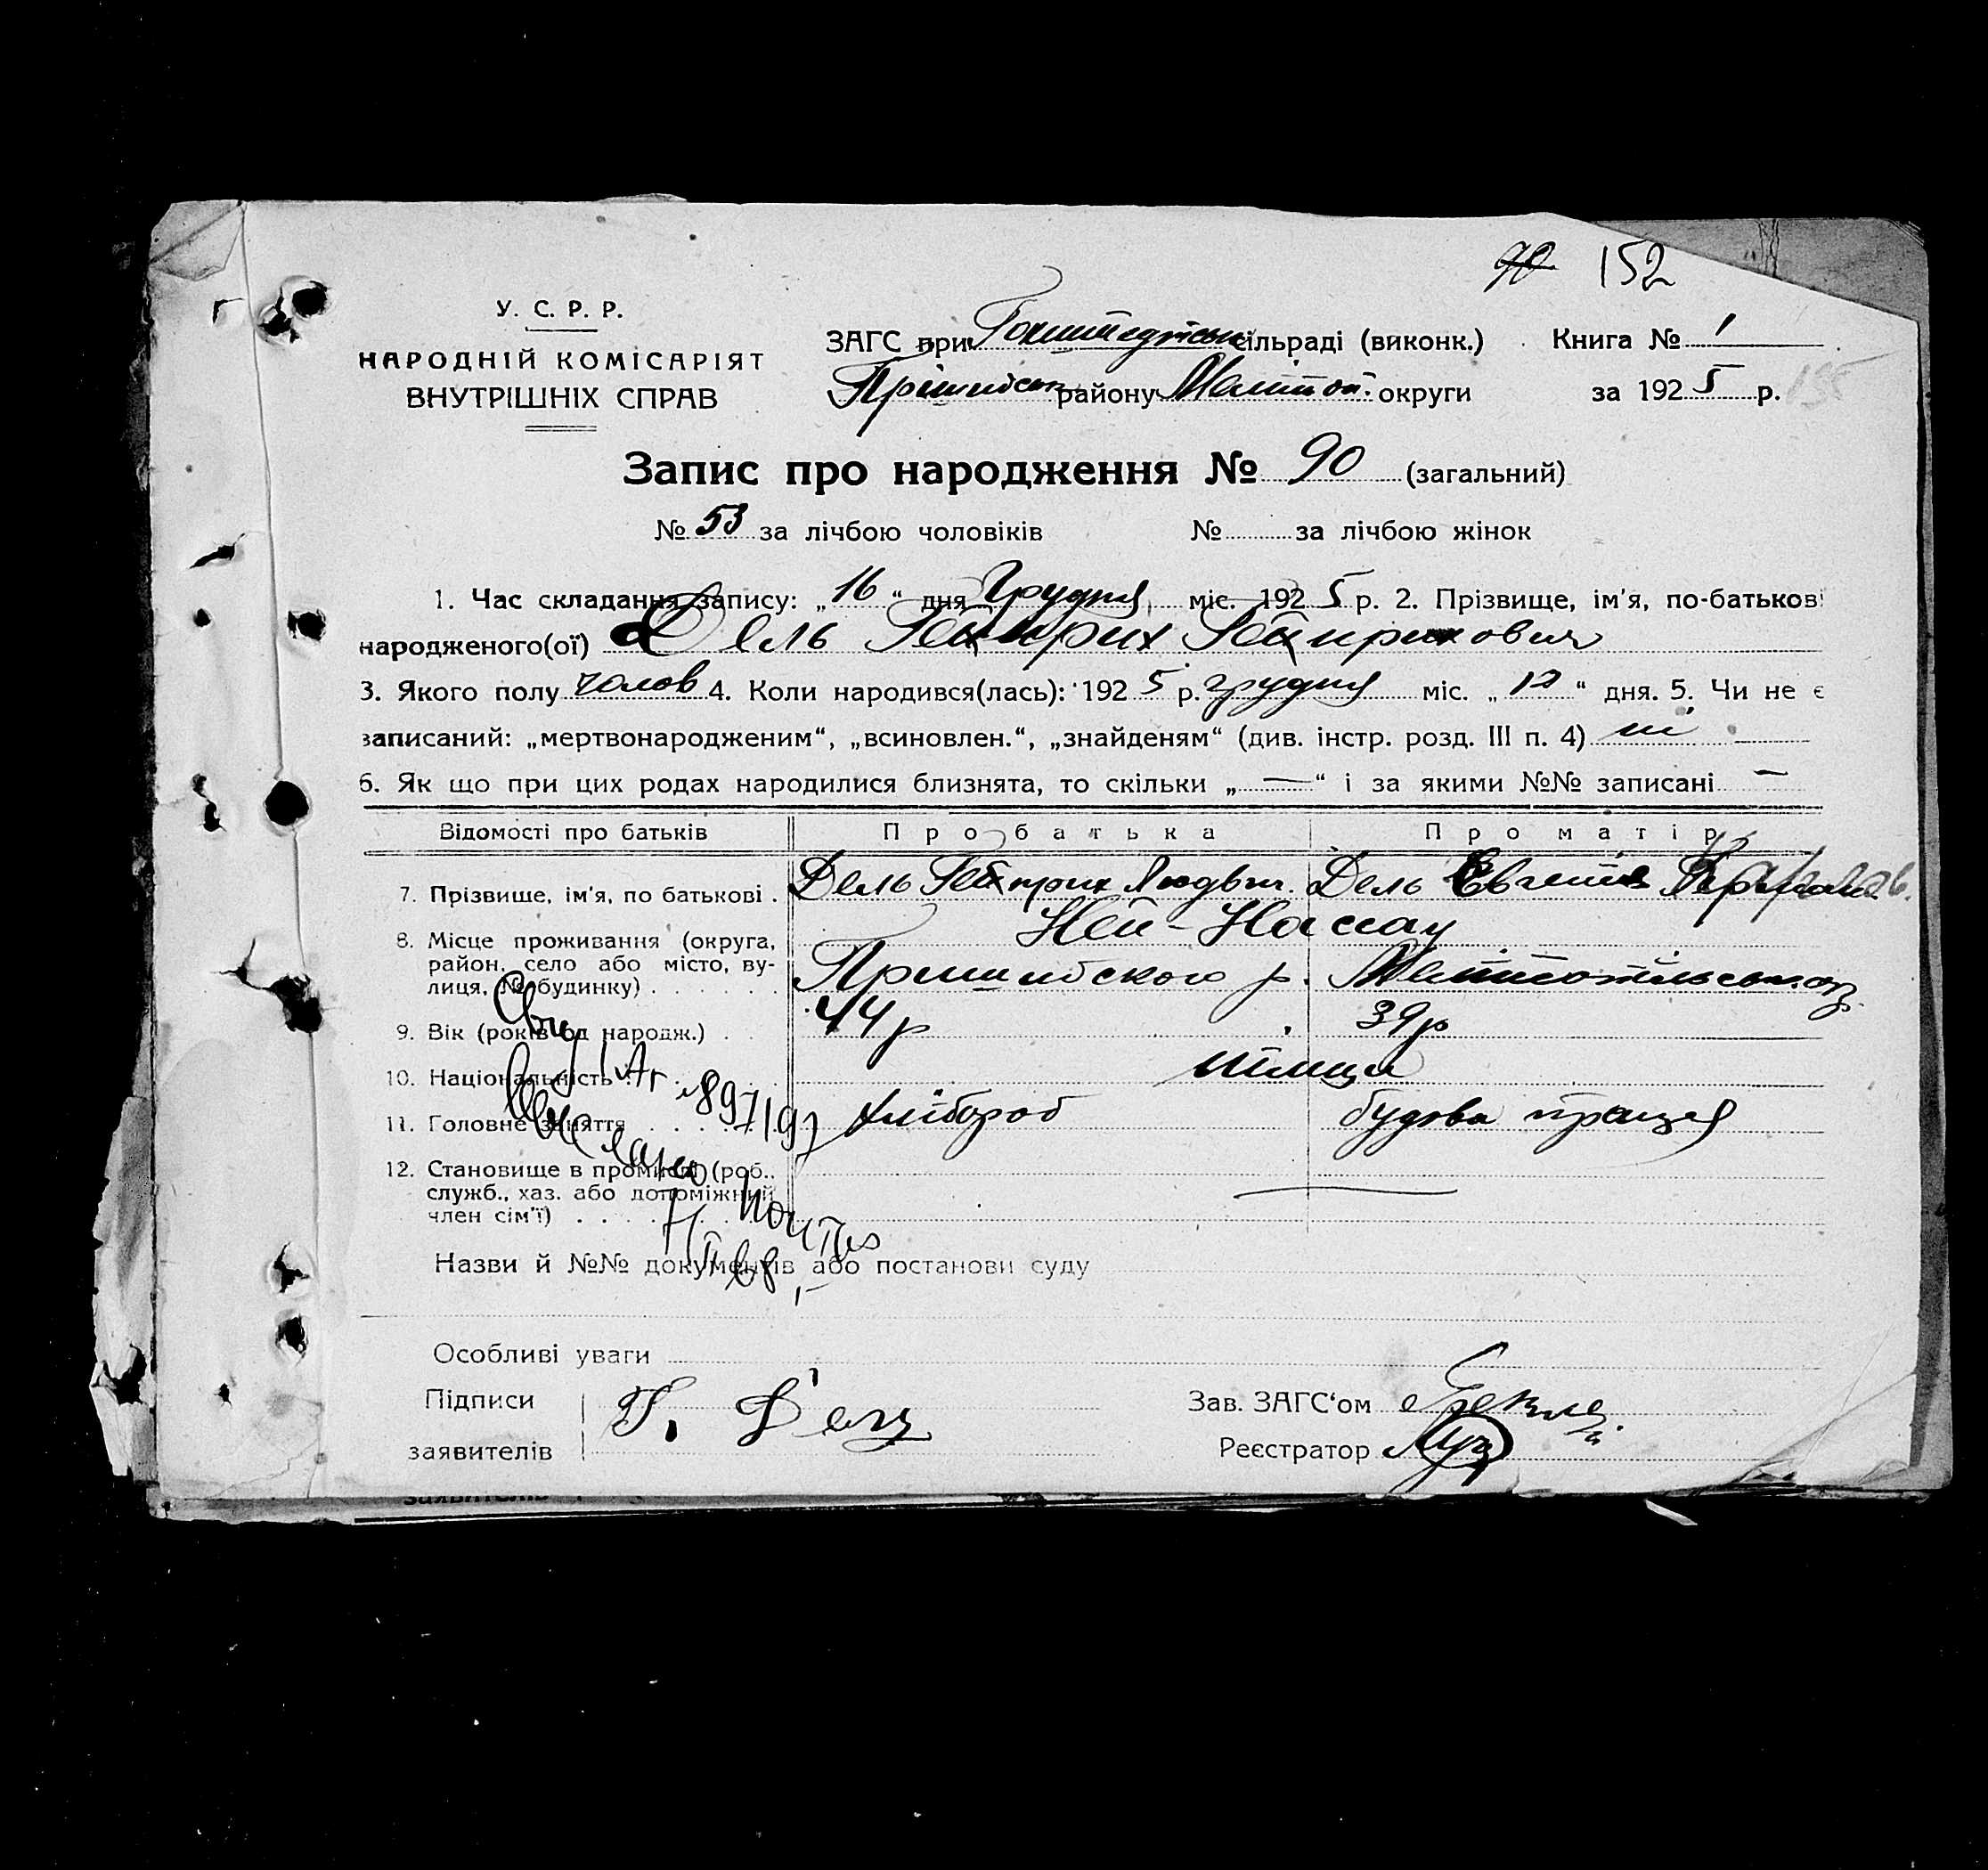 90 152
У. С. Р. Р.
НАРОДНІЙ КОМІСАРІЯТ
ВНУТРІШНІХ СПРАВ
ЗАГС при Гохштедтськ сільраді (виконк.)
Пришибськ району Мелітоп. округи
Книга № 1
за 1925 р.
Запис про народження № 90 (загальний)
№ 53 за лічбою чоловіків № за лічбою жінок
1. Час складання запису: „16“ дня Грудня міс. 1925 р. 2. Прізвище, ім'я, по-батькові
народженого(ої) Дель Гейнрих Гейнрихович
3. Якого полу чолов 4. Коли народився(лась): 1925 р. грудня міс. „12“ дня. 5. Чи не є
записаний: „мертвонародженим“, „всиновлен.“, „знайденям“ (див. інстр. розд. III п. 4) ні
6. Як що при цих родах народилися близнята, то скільки „—“ і за якими №№ записані —
Відомості про батьків Про батька Про матір
7. Прізвище, ім'я, по батькові . Дель Гейнрих Людвиг. Дель Євгенія
8. Місце проживання (округа, Ней-Нассау
район, село або місто, ву-
лиця, № будинку) . . . . . . Пришибского р. Мелітопільськ. окр.
9. Вік (років од народж.) . . 44 р 39 р
10. Національність . . . . . німци
11. Головне заняття . . . . . . хлібороб будова праця
12. Становище в промислі (роб.,
служб., хаз. або допоміжний
член сім'ї) . . . . . . —
Назви й №№ документів або постанови суду
Особливі уваги
Підписи
заявителів
Г. Делч
Зав. ЗАГС'ом
Реєстратор
заявителів